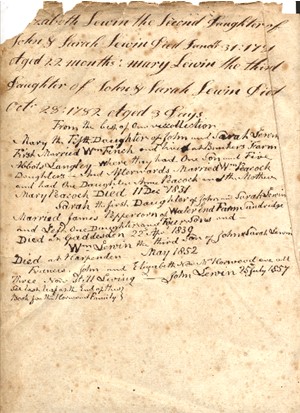 Elizabeth Lewin the Second Daughter of
John & Sarah Lewin Died
Aged 22 months: mary Lewin the third
Daughter of John & Sarah Lewin Died
Oct: 28: 1782 Aged 3 Days
From the best of Our recollection
Mary the Daughter of John and Sarah Lewin
First Married Wm and lived at Bunkers Farm
Abbots Langley where they had One Son & Five
Daughters And Afterwards Married Wm Peacock
and had One Daughter Ann Peacock and the Mother
Mary Peacock Died 11 Dec 1831
Sarah the first Daughter of John and Sarah Lewin
Married James Peppercorn of End Farm
and Left One Daughter and Four Sons and
Died at Gaddesden 22 1839
Wm Lewin the third Son of John & Sarah Lewin
Died at Harpenden May 1852
John and Elizabeth are all
Three Now Still Living — John Lewin 25 July 1857
See last leaf at the End of this
Book for the Family